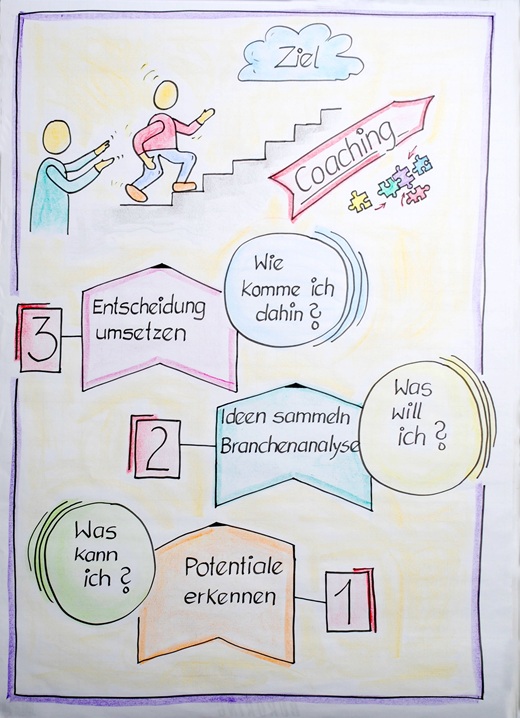 Ziel
Coaching
Wie
komme ich
dahin?
Entscheidung
umsetzen
3
Was
will
ich?
Ideen sammeln
Branchenanalyse
2
Was
kann
ich?
Potentiale
erkennen
1